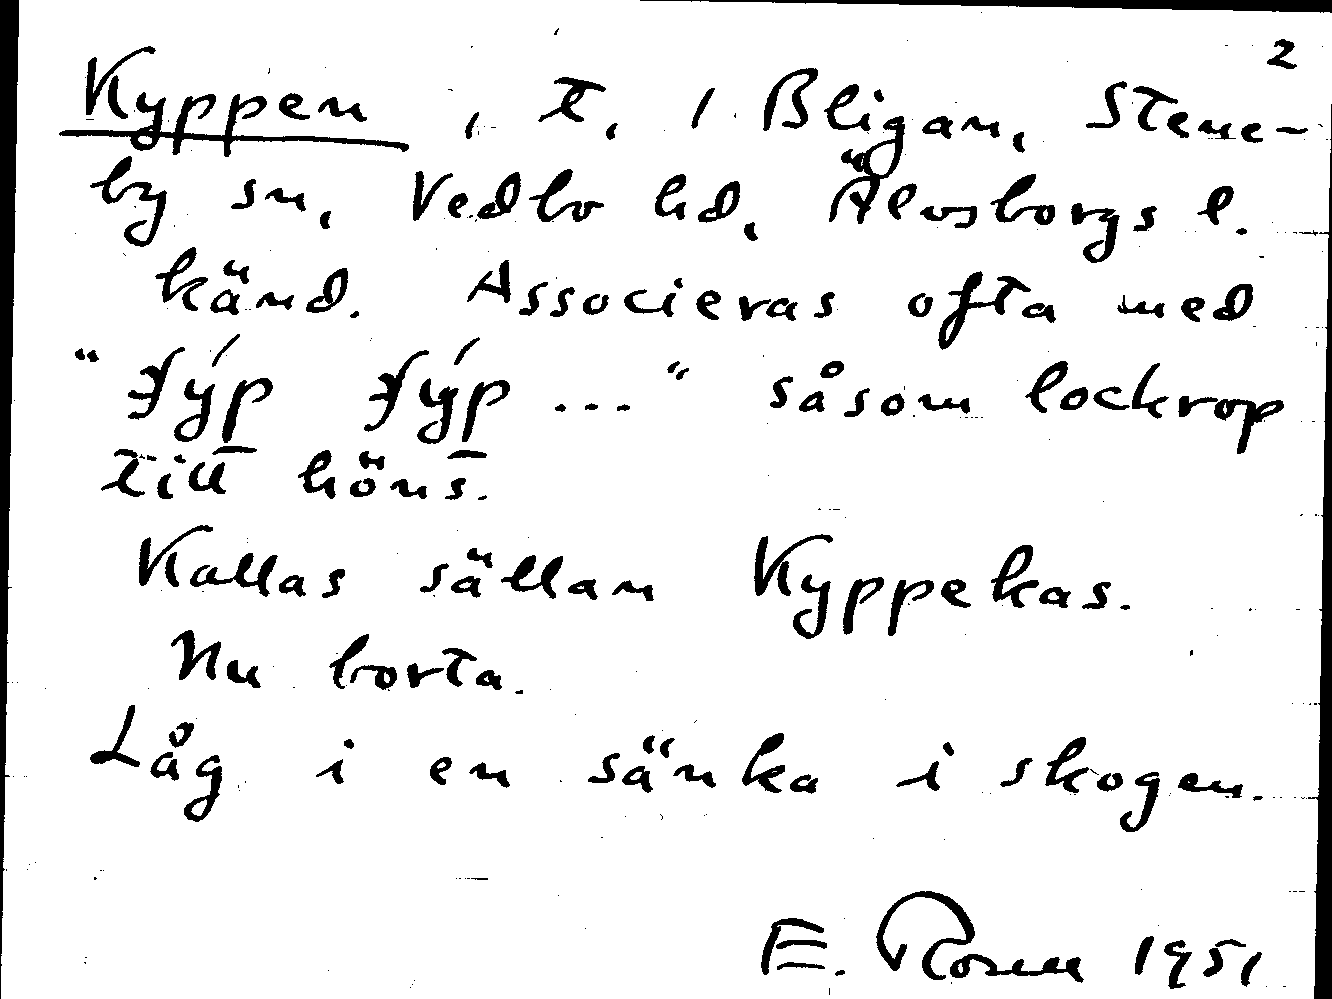 2
Kyppen, t. 1 Bligan, Stene-
by sn, Vedbo hd, Älvsborgs l.
känd. Associeras ofta med
"Jýp Jýp ..." såsom lockrop
till höns.
Kallas sällan Kyppekas.
Nu borta.
Låg i en sänka i skogen.
E. Rosell 1951